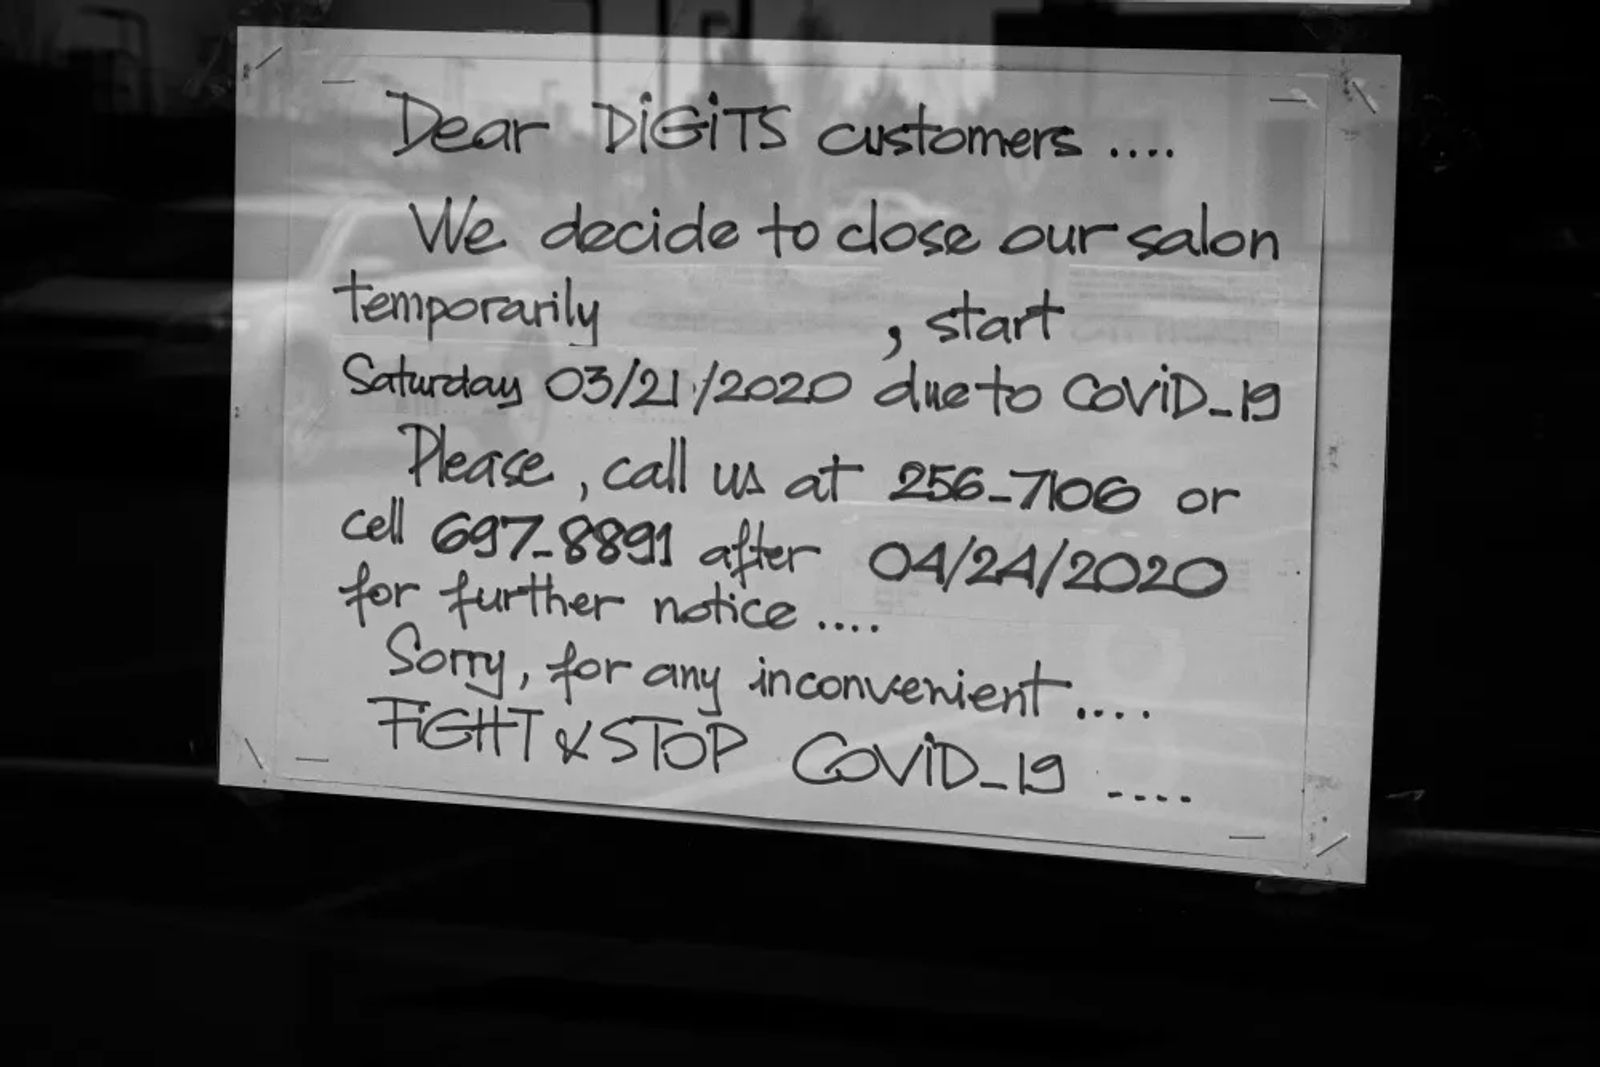 Dear DiGiTS customers ....
We decide to close our salon
temporarily , start
Saturday 03/21/2020 due to COViD_19
Please, call us at 256_7106 or
cell 697_8891 after 04/24/2020
for further notice ....
Sorry, for any inconvenient ....
FiGHT & STOP COViD_19 ....